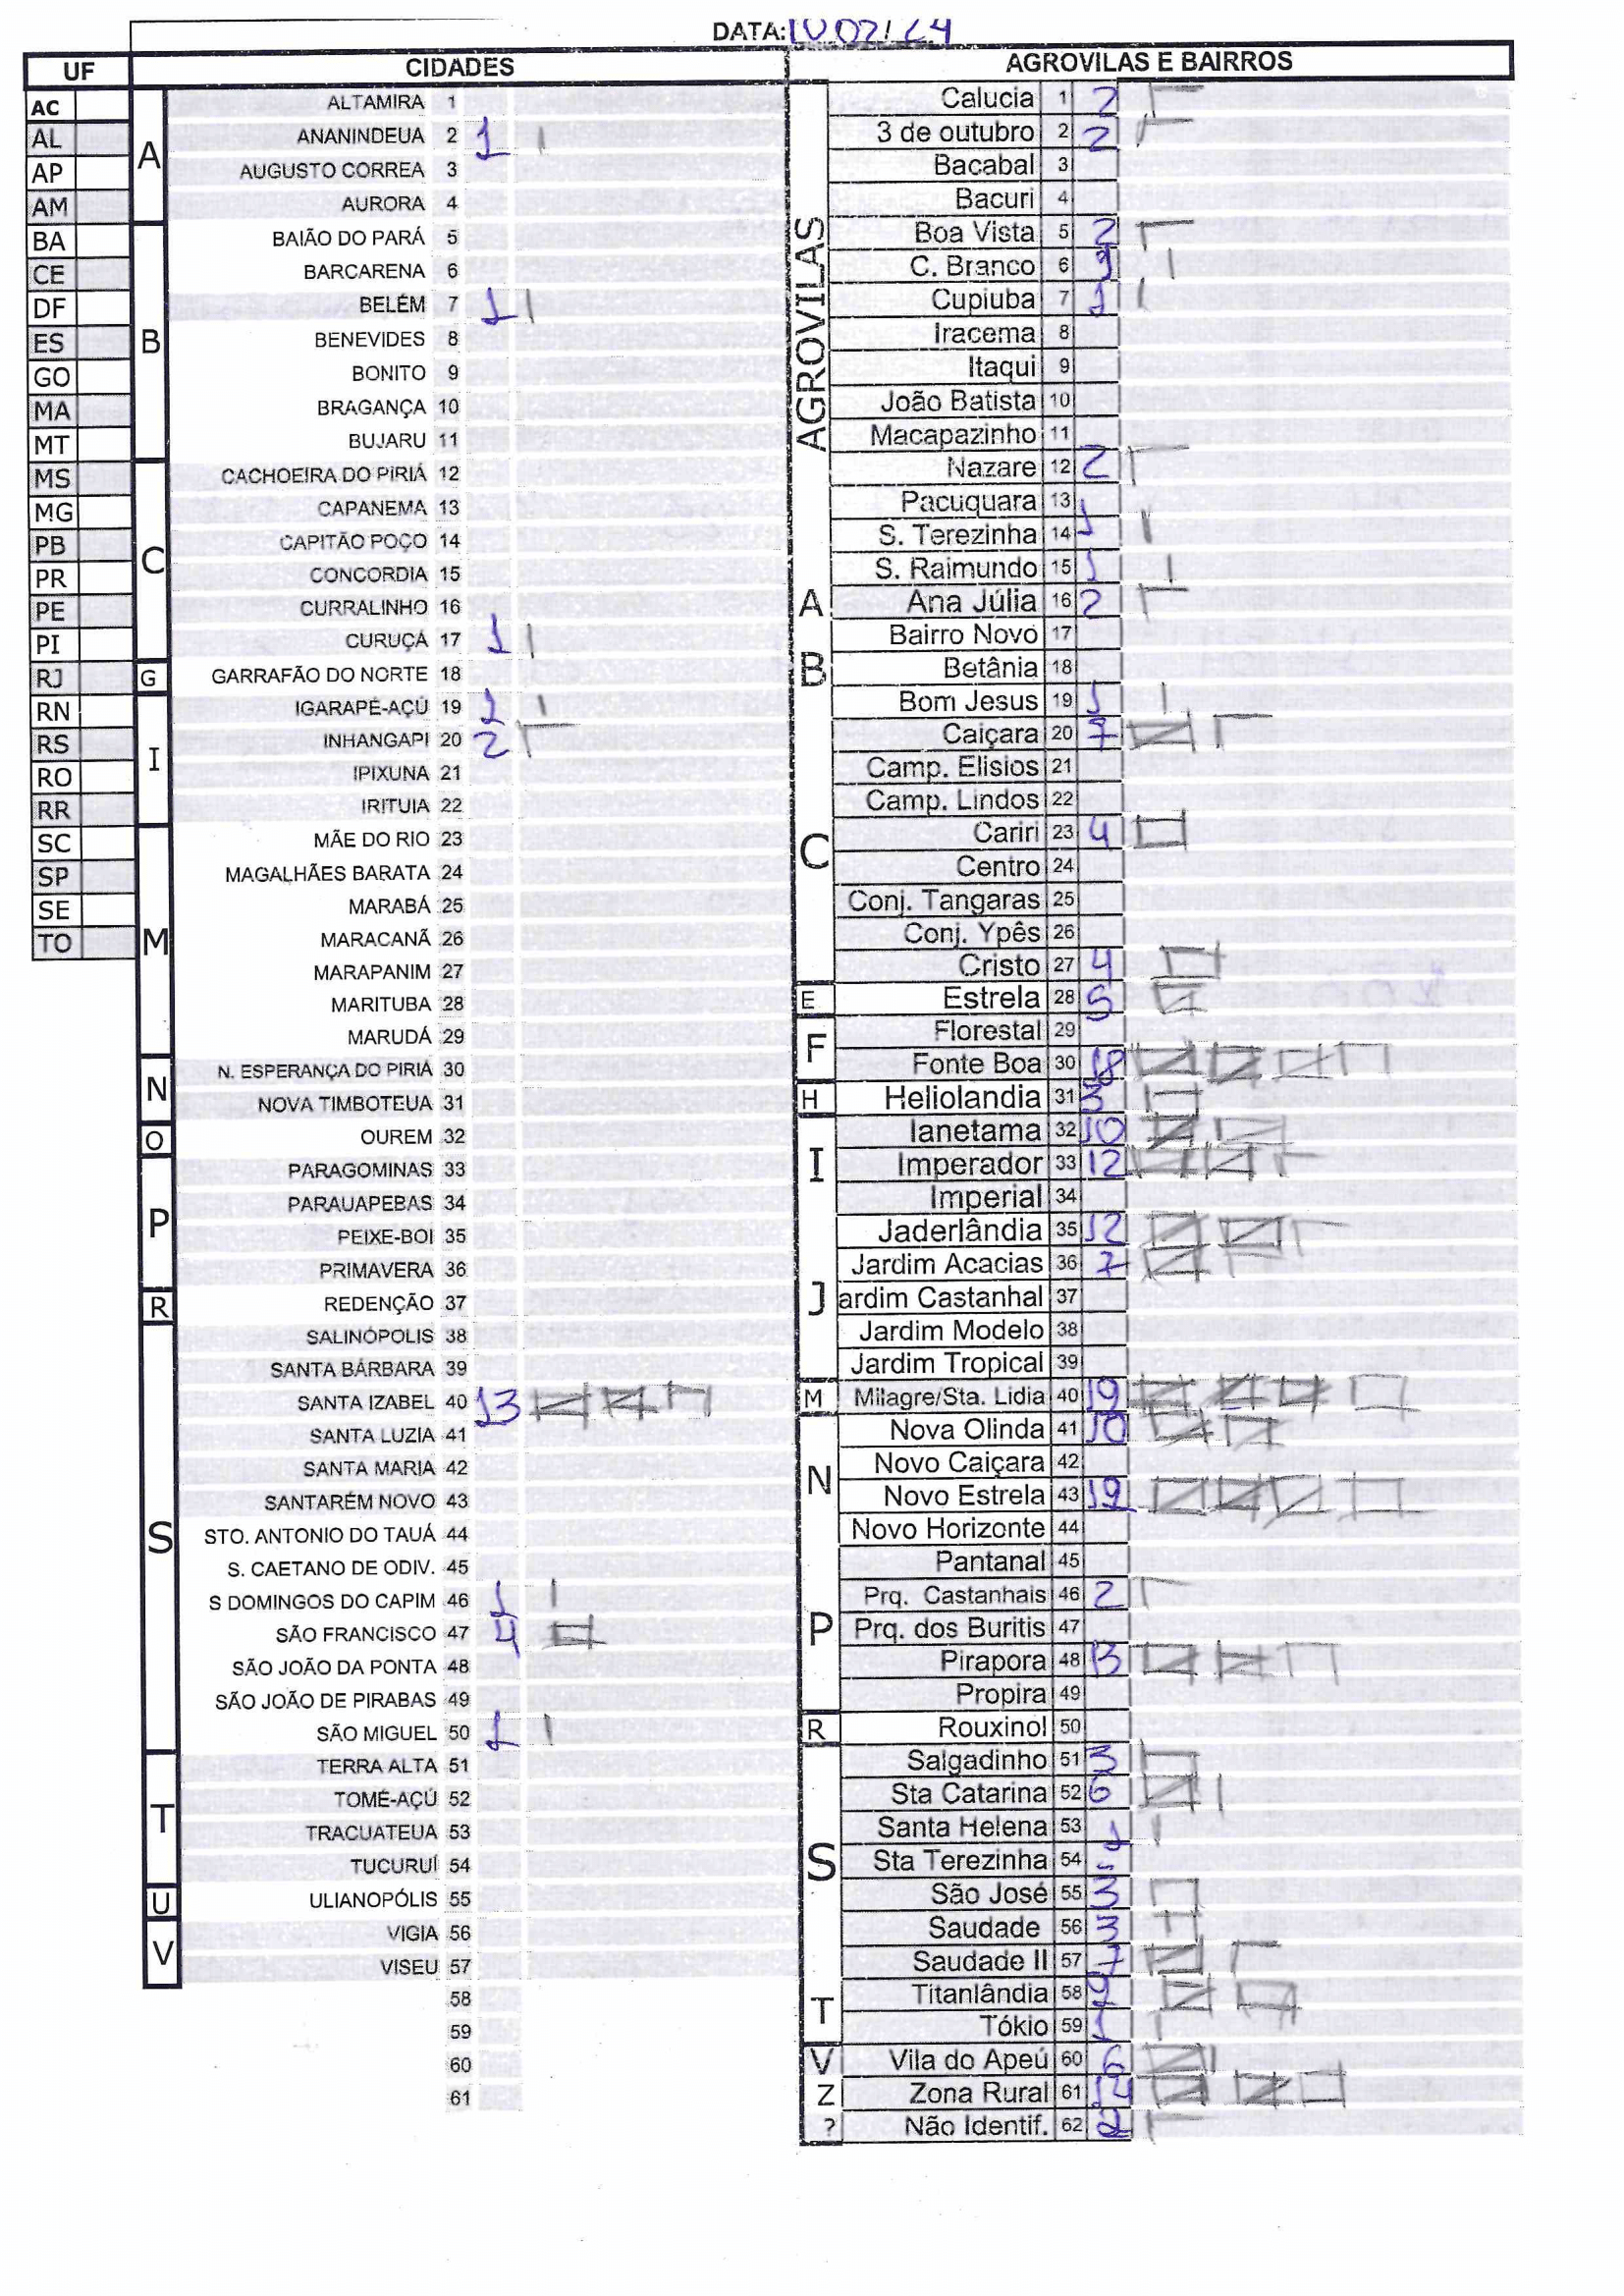 DATA:
UF CIDADES AGROVILAS E BAIRROS
AC
AL
AP
AM
BA
CE
DF
ES
GO
MA
MT
MS
MG
PB
PR
PE
PI
RJ
RN
RS
RO
RR
SC
SP
SE
TO
A
ALTAMIRA 1
ANANINDEUA 2 1
AUGUSTO CORREA 3
AURORA 4
B
BAIÃO DO PARÁ 5
BARCARENA 6
BELÉM 7 1
BENEVIDES 8
BONITO 9
BRAGANÇA 10
BUJARU 11
C
CACHOEIRA DO PIRIÁ 12
CAPANEMA 13
CAPITÃO POÇO 14
CONCORDIA 15
CURRALINHO 16
CURUÇÁ 17 1
G
GARRAFÃO DO NORTE 18
I
IGARAPÉ-AÇÚ 19 1
INHANGAPI 20 2
IPIXUNA 21
IRITUIA 22
M
MÃE DO RIO 23
MAGALHÃES BARATA 24
MARABÁ 25
MARACANÃ 26
MARAPANIM 27
MARITUBA 28
MARUDÁ 29
N
N. ESPERANÇA DO PIRIÁ 30
NOVA TIMBOTEUA 31
O
OUREM 32
P
PARAGOMINAS 33
PARAUAPEBAS 34
PEIXE-BOI 35
PRIMAVERA 36
R
REDENÇÃO 37
S
SALINÓPOLIS 38
SANTA BÁRBARA 39
SANTA IZABEL 40 13
SANTA LUZIA 41
SANTA MARIA 42
SANTARÉM NOVO 43
STO. ANTONIO DO TAUÁ 44
S. CAETANO DE ODIV. 45
S DOMINGOS DO CAPIM 46 1
SÃO FRANCISCO 47 4
SÃO JOÃO DA PONTA 48
SÃO JOÃO DE PIRABAS 49
SÃO MIGUEL 50 1
T
TERRA ALTA 51
TOMÉ-AÇÚ 52
TRACUATEUA 53
TUCURUÍ 54
U
ULIANOPÓLIS 55
V
VIGIA 56
VISEU 57
58
59
60
61
AGROVILAS
Calucia 1 2
3 de outubro 2 2
Bacabal 3
Bacuri 4
Boa Vista 5 2
C. Branco 6 1
Cupiuba 7 1
Iracema 8
Itaqui 9
João Batista 10
Macapazinho 11
Nazare 12 2
Pacuquara 13
S. Terezinha 14 1
S. Raimundo 15 1
A
Ana Júlia 16 2
Bairro Novo 17
B
Betânia 18
Bom Jesus 19 1
Caiçara 20 7
Camp. Elisios 21
Camp. Lindos 22
Cariri 23 4
C
Centro 24
Conj. Tangaras 25
Conj. Ypês 26
Cristo 27 4
E
Estrela 28 5
F
Florestal 29
Fonte Boa 30 18
H
Heliolandia 31 3
I
Ianetama 32 10
Imperador 33 12
Imperial 34
Jaderlândia 35 12
Jardim Acacias 36 7
J
ardim Castanhal 37
Jardim Modelo 38
Jardim Tropical 39
M
Milagre/Sta. Lidia 40 19
N
Nova Olinda 41 10
Novo Caiçara 42
Novo Estrela 43 19
Novo Horizonte 44
P
Pantanal 45
Prq. Castanhais 46 2
Prq. dos Buritis 47
Pirapora 48 13
Propira 49
R
Rouxinol 50
S
Salgadinho 51 3
Sta Catarina 52 6
Santa Helena 53 1
Sta Terezinha 54
São José 55 3
Saudade 56 3
Saudade II 57 7
T
Titanlândia 58 9
Tókio 59 1
V
Vila do Apeú 60 6
Z
Zona Rural 61 14
?
Não Identif. 62 2